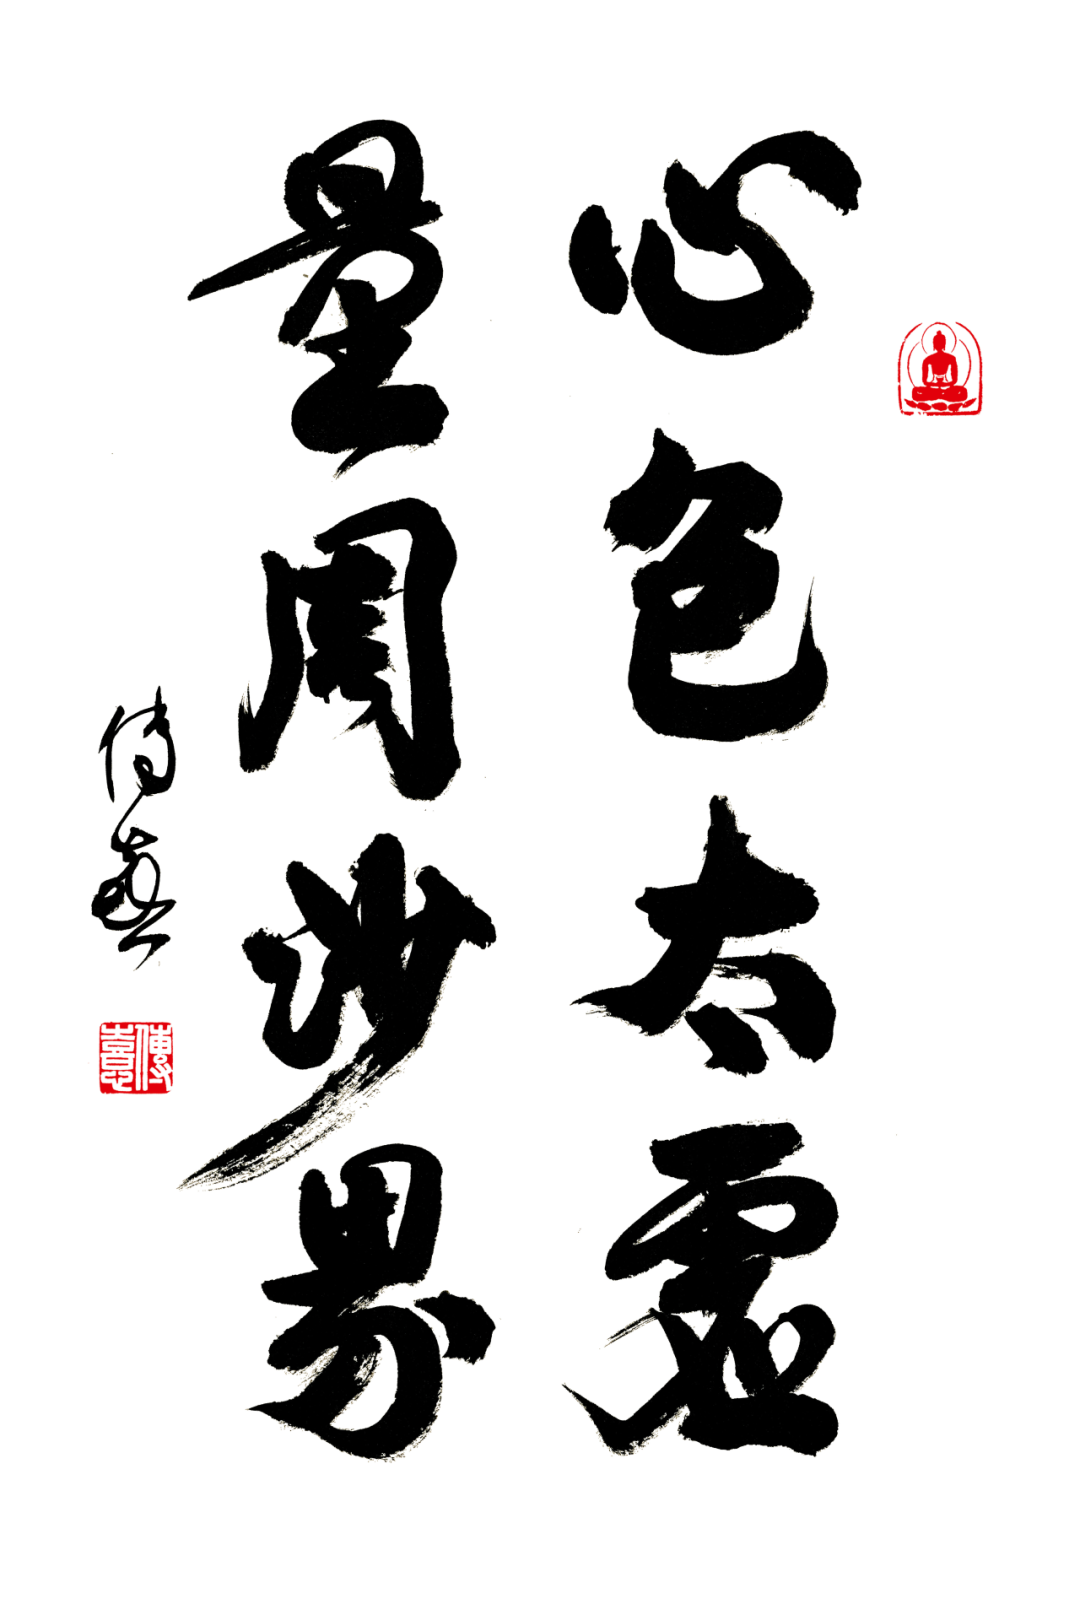 心包太虛
量周沙界
傳憙
傳憙